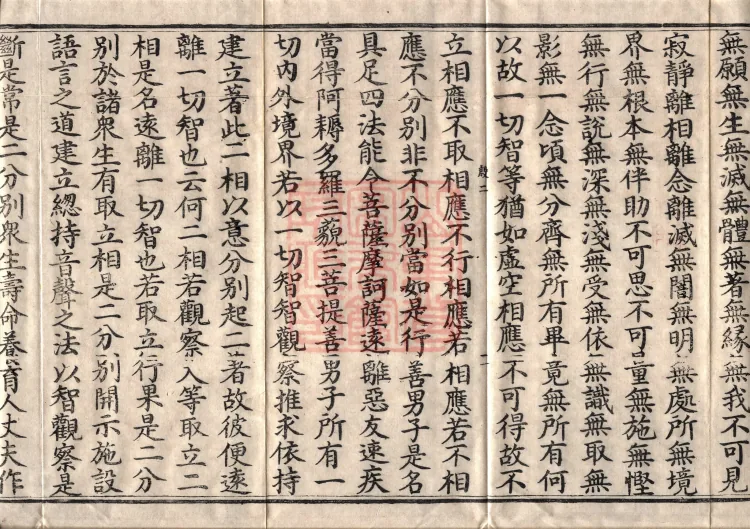 無願無生無滅無體無著無緣無我不可見
寂靜離相離念離滅無闇無明無處所無境
界無根本無伴助不可思不可量無施無慳
無行無說無深無淺無受無依無識無取無
影無一念頃無分齊無所有畢竟無所有何
以故一切智等猶如虛空相應不可得故不
殷二
二
立相應不取相應不行相應若相應若不相
應不分別非不分別當如是行善男子是名
具足四法能令菩薩摩訶薩遠離惡友速疾
當得阿耨多羅三藐三菩提善男子所有一
切內外境界若以一切智智觀察推求依持
建立著此二相以意分別起二著故彼便遠
離一切智也云何二相若觀察入等取立二
相是名遠離一切智也若取立行果是二分
別於諸衆生有取立相是二分別開示施設
語言之道建立緫持音聲之法以智觀察是
斷是常是二分別衆生壽命養育人丈夫作